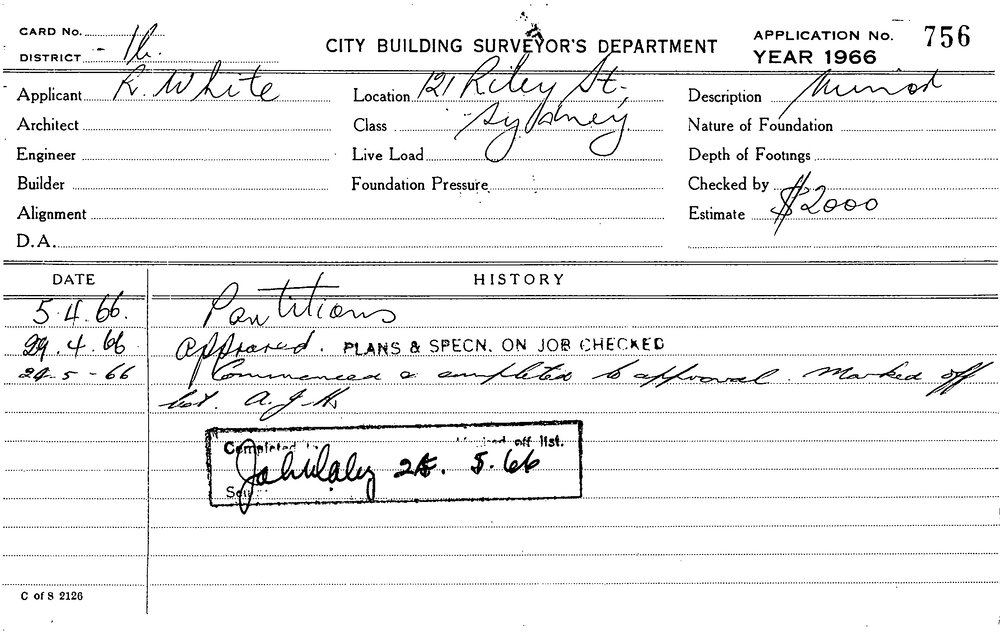 CARD No.
DISTRICT 1b.
CITY BUILDING SURVEYOR'S DEPARTMENT
APPLICATION No. 756
YEAR 1966
Applicant R. White
Location 121 Riley St.,
Description Minor
Architect
Class Sydney
Nature of Foundation
Engineer
Live Load
Depth of Footings
Builder
Foundation Pressure
Checked by
Alignment
Estimate $2000
D.A.
DATE HISTORY
5.4.66. Partitions
29.4.66 Approved. PLANS & SPECN. ON JOB CHECKED
24-5-66 Commenced & completed to approval. Marked off
list. A.J.H
Completed off list.
25.5.66
C of S 2126